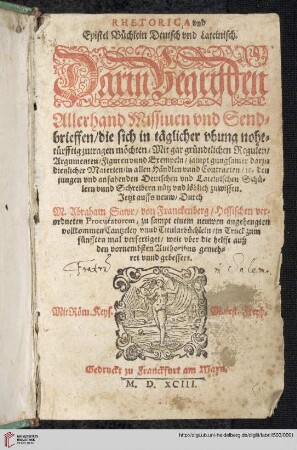 RHETORICA vnd
Epistel Büchlein Deutsch vnd Lateinisch.
Darin Begriffen
Allerhand Missiuen vnd Send-
brieffen/die sich in täglicher vbung noht-
türfftig zutragen möchten/ Mit gar gründtlichen Regulen/
Argumenten/Figuren vnd Exempeln/ sampt gnugsamer darzu
dienlicher Materien/in allen Händlen vnnd Contracten/ den
jungen vnd anfahenden Deutschen vnd Lateinischen Schü-
lern vnnd Schreibern nütz vnd löblich zuwissen.
Jetzt auffs neuw/Durch
M. Abraham Sawr/ von Franckenberg/ Hessischen ver-
ordneten Procuratorem/ zu sampt einem neuwen angehengten
vollkommen Cantzeley vnnd Titularbüchlein in Truck zum
fünfften mal verfertiget/ weit vber die helfft auß
den vornembsten Authoribus gemeh-
ret vnnd gebessert.
Mit Röm. Keys. Maiest. Freyh.
Gedruckt zu Franckfurt am Mayn,
M. D. XCIII.